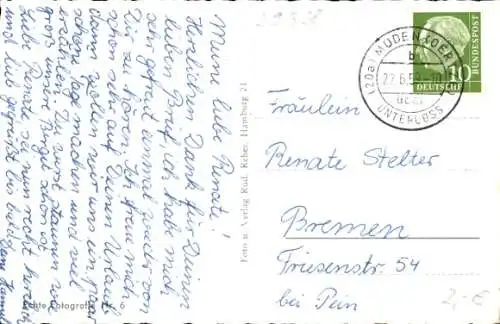 Meine liebe Renate!
Herzlichen Dank für Deinen
lieben Brief, ich habe mich
sehr gefreut einmal etwas von
Dir zu hören. Ich freue mich
schon sehr auf Deinen Urlaub
dann wollen wir uns ein paar
schöne Tage machen und viel
erzählen. Du wirst staunen wie
groß unsere Birgit schon ist.
Liebe Renate sei nun recht herzlich
und lieb gegrüßt bis bald
Echte Fotografie Nr. 6
Foto u. Verlag Rud. Reher, Hamburg 21
(20a) MÜDEN (OER
b
22.6.59-10
UNTERLÜSS
DEUTSCHE BUNDESPOST
10
Fräulein
Renate Stelter
Bremen
Friesenstr. 54
bei Pein
2,- €